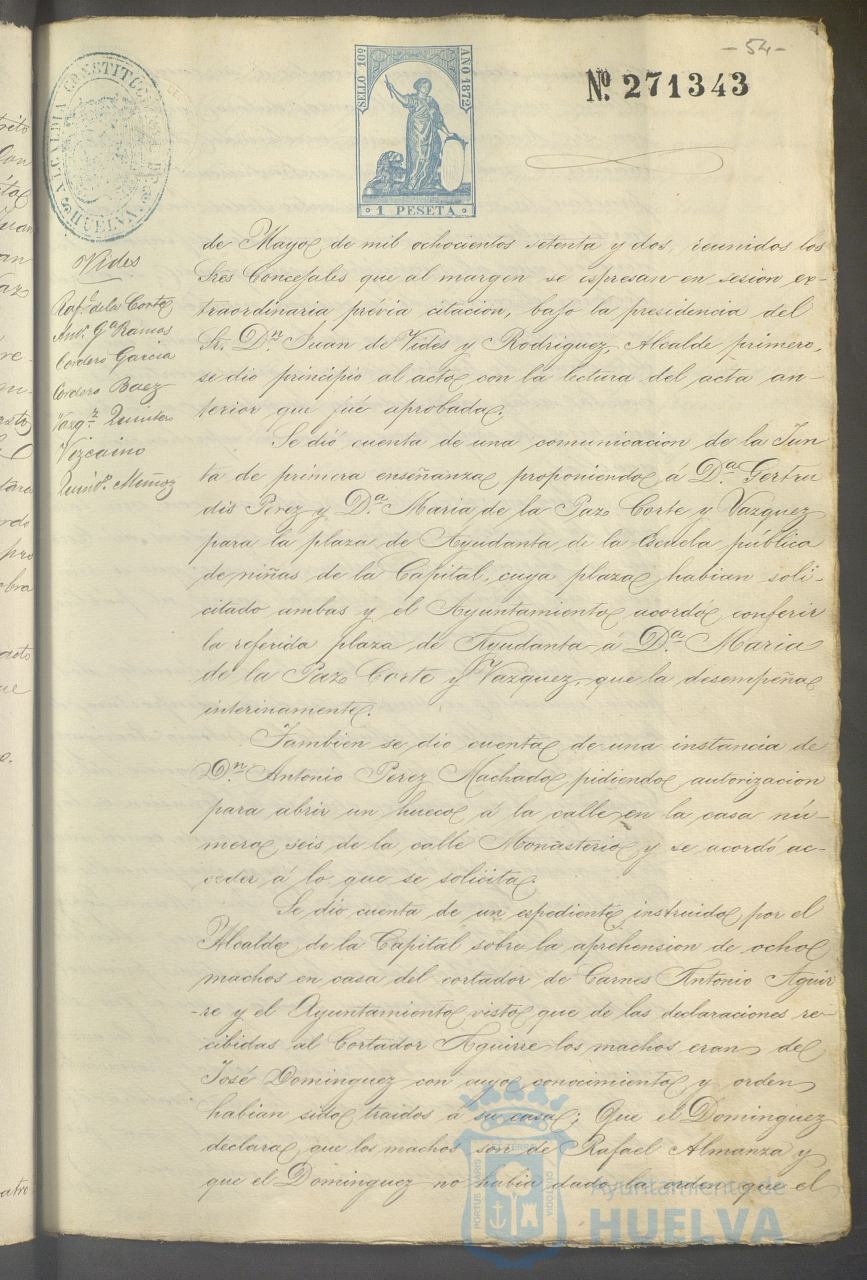 - 54 -
ALCALDIA CONSTITUCIONAL DE
HUELVA
SELLO 10º
AÑO 1872
1 PESETA
Nº 271343
Vides
Raf.l de la Corte
Ant.º G.a Ramos
Cordero Garcia
Cordero Baez
Vazq.z Quintero
Vizcaino
Quint.º Muñoz
de Mayo de mil ochocientos setenta y dos, reunidos los
Sres Concejales que al margen se espresan en sesion ex-
traordinaria prévia citacion, bajo la presidencia del
Sr. D.n Juan de Vides y Rodriguez, Alcalde primero,
se dio principio al acto con la lectura del acta an-
terior que fué aprobada.
Se dió cuenta de una comunicacion de la Jun
ta de primera enseñanza proponiendo á D.a Gertru
dis Perez y D.a Maria de la Paz Corte y Vazquez
para la plaza de Ayudanta de la Escuela pública
de niñas de la Capital, cuya plaza habian soli-
citado ambas y el Ayuntamiento acordó conferir
la referida plaza de Ayudanta á D.a Maria
de la Paz Corte y Vazquez, que la desempeña
interinamente.
Tambien se dio cuenta de una instancia de
D.n Antonio Perez Machado pidiendo autorizacion
para abrir un hueco á la calle en la casa nú-
mero seis de la calle Monasterio y se acordó ac-
ceder á lo que se solicita.
Se dio cuenta de un espediente instruido por el
Alcalde de la Capital sobre la aprehension de ocho
machos en casa del cortador de Carnes Antonio Aguir
-re y el Ayuntamiento visto que de las declaraciones re-
cibidas al Cortador Aguirre los machos eran de
José Dominguez con cuyo conocimiento y orden
habian sido traidos á su casa; Que el Dominguez
declara que los machos son de Rafael Almanza y
que el Dominguez no habia dado la orden que el
PORTUS MARIS ET TERRÆ CUSTODIA
Ayuntamiento de
HUELVA